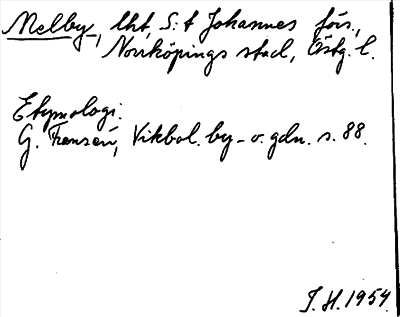 Melby, lht, S:t Johannes förs.,
Norrköpings stad, Östg. l.
Etymologi:
G. Franzén, Vikbol. by- o. gdn. s. 88.
I. H. 1954